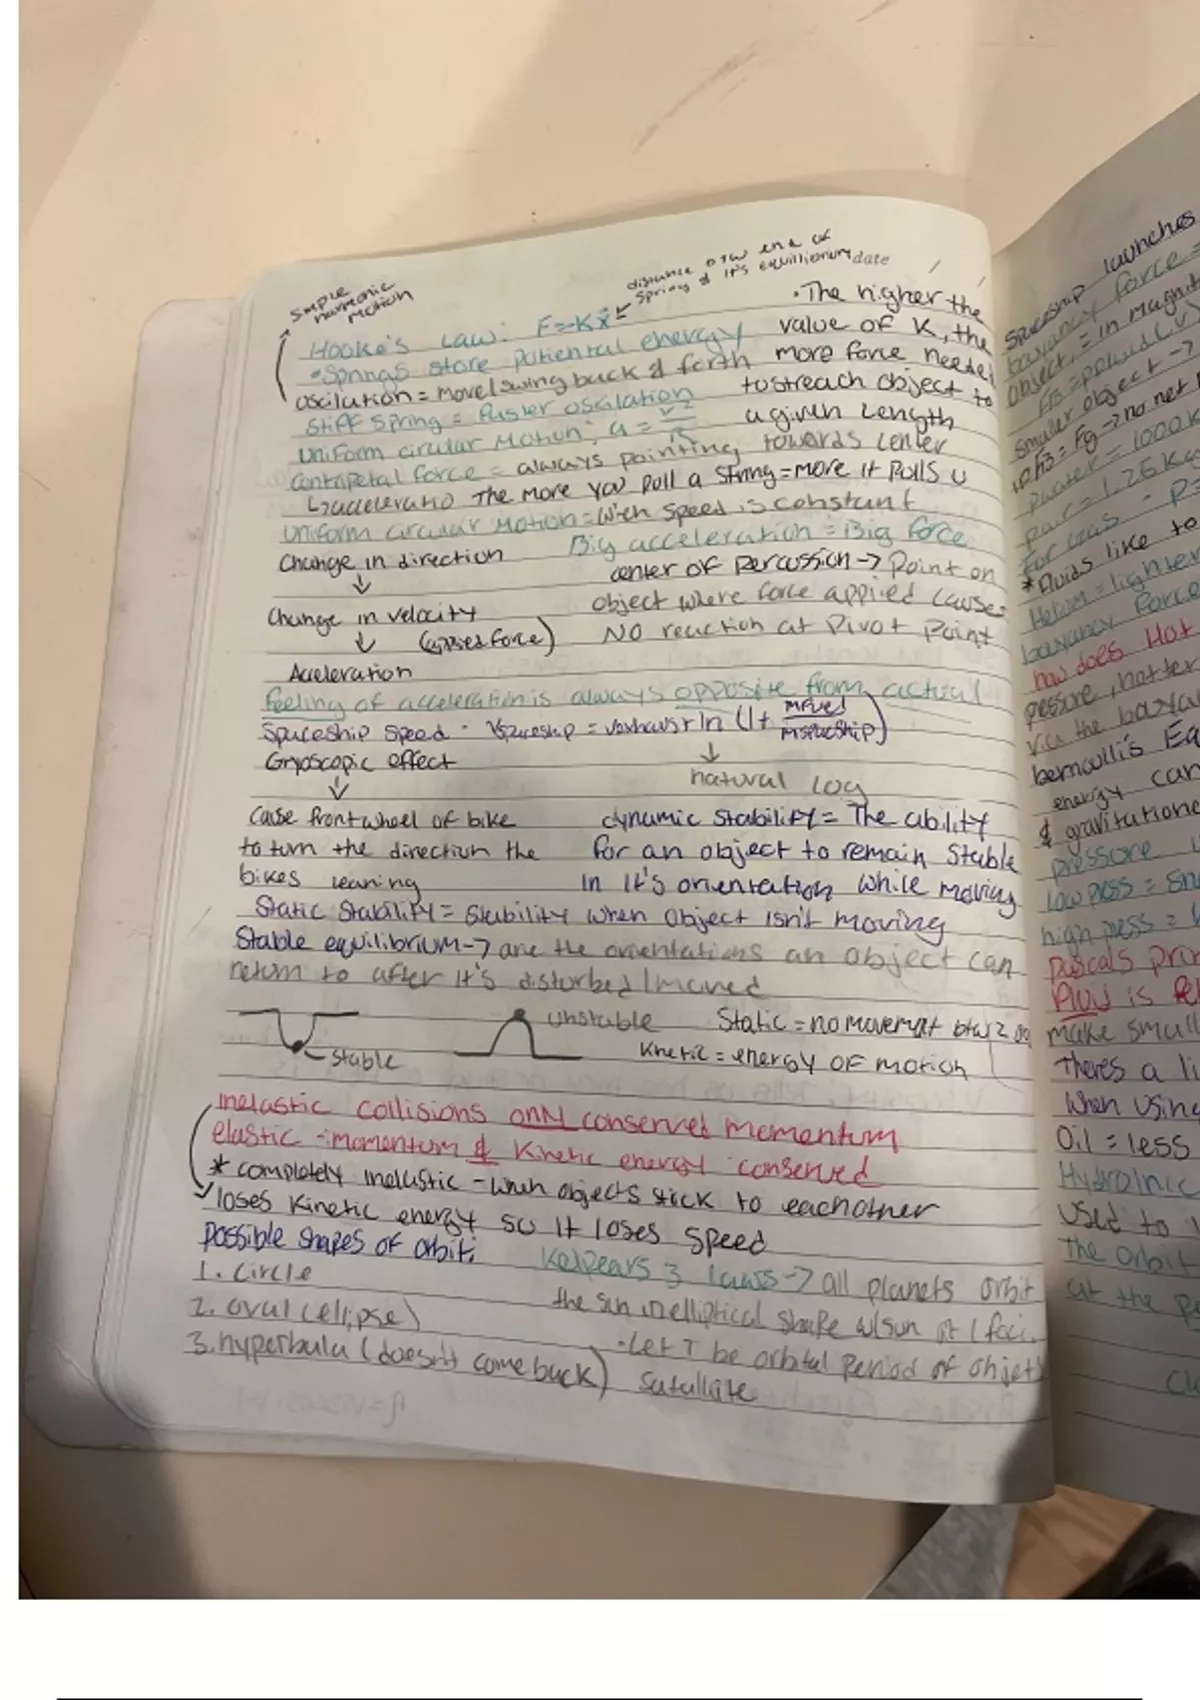 simple
harmonic
motion
distance btw end of
spring & it's equillionum date
Hooke's Law: F=-Kx
• The higher the
• Springs store potiental energy
value of K, the
oscilution = move/swing back & forth
more force needed
Stiff Spring = faster oscilation
to streach object to
a given Length
Uniform circular Motion; a = v²/r
centripetal force = always pointing towards center
↳ acceleratio The more you pull a string = more it pulls u
Uniform circular Motion = with speed is constant
Change in direction
Big acceleration = Big force
↓
center of percussion → Point on
Change in velocity
object where force applied causes
↓ (applied force)
NO reaction at Pivot Point
Acceleration
feeling of acceleration is always opposite from actual
Spaceship Speed - Vspaceship = vexhaust ln (1 + mfuel/mspaceship)
Gryoscopic effect
↓
↓
natural log
cause front wheel of bike
to turn the direction the
bikes leaning
dynamic Stability = The ability
for an object to remain Stable
in it's orientation while moving
Static Stability = Stability when object isn't moving
Stable equilibrium → are the orientations an object can
return to after it's disturbed/moved
unstable
Stable
Static = no movement btw 2
Kinetic = energy of motion
inelastic collisions only conserved momentum
elastic - momentum & Kinetic energy conserved
* completely inelastic - when objects stick to eachother
loses Kinetic energy so it loses speed
possible shapes of orbit:
1. circle
2. oval (ellipse)
3. hyperbula (doesn't come back)
Kelpears 3 laws → all planets orbit
the sun in elliptical shape w/sun at 1 foci.
• Let T be orbital period of object
satullite
Spaceship launches
buoyancy force =
object, = in magnit
smaller object →
= Fg → no net
Pwater = 1000 K
pair = 1.26 Kg
For gas - P=
* fluids like to
Helium = lighter
buoyancy force
how does Hot
pessure, hotter
bernoulli's Eq
energy can
& gravitatione
pressure
low press = sm
high press =
pascals prin
make small
Theres a li
when using
Oil = less
Hydrolnic
used to
The orbit
at the p